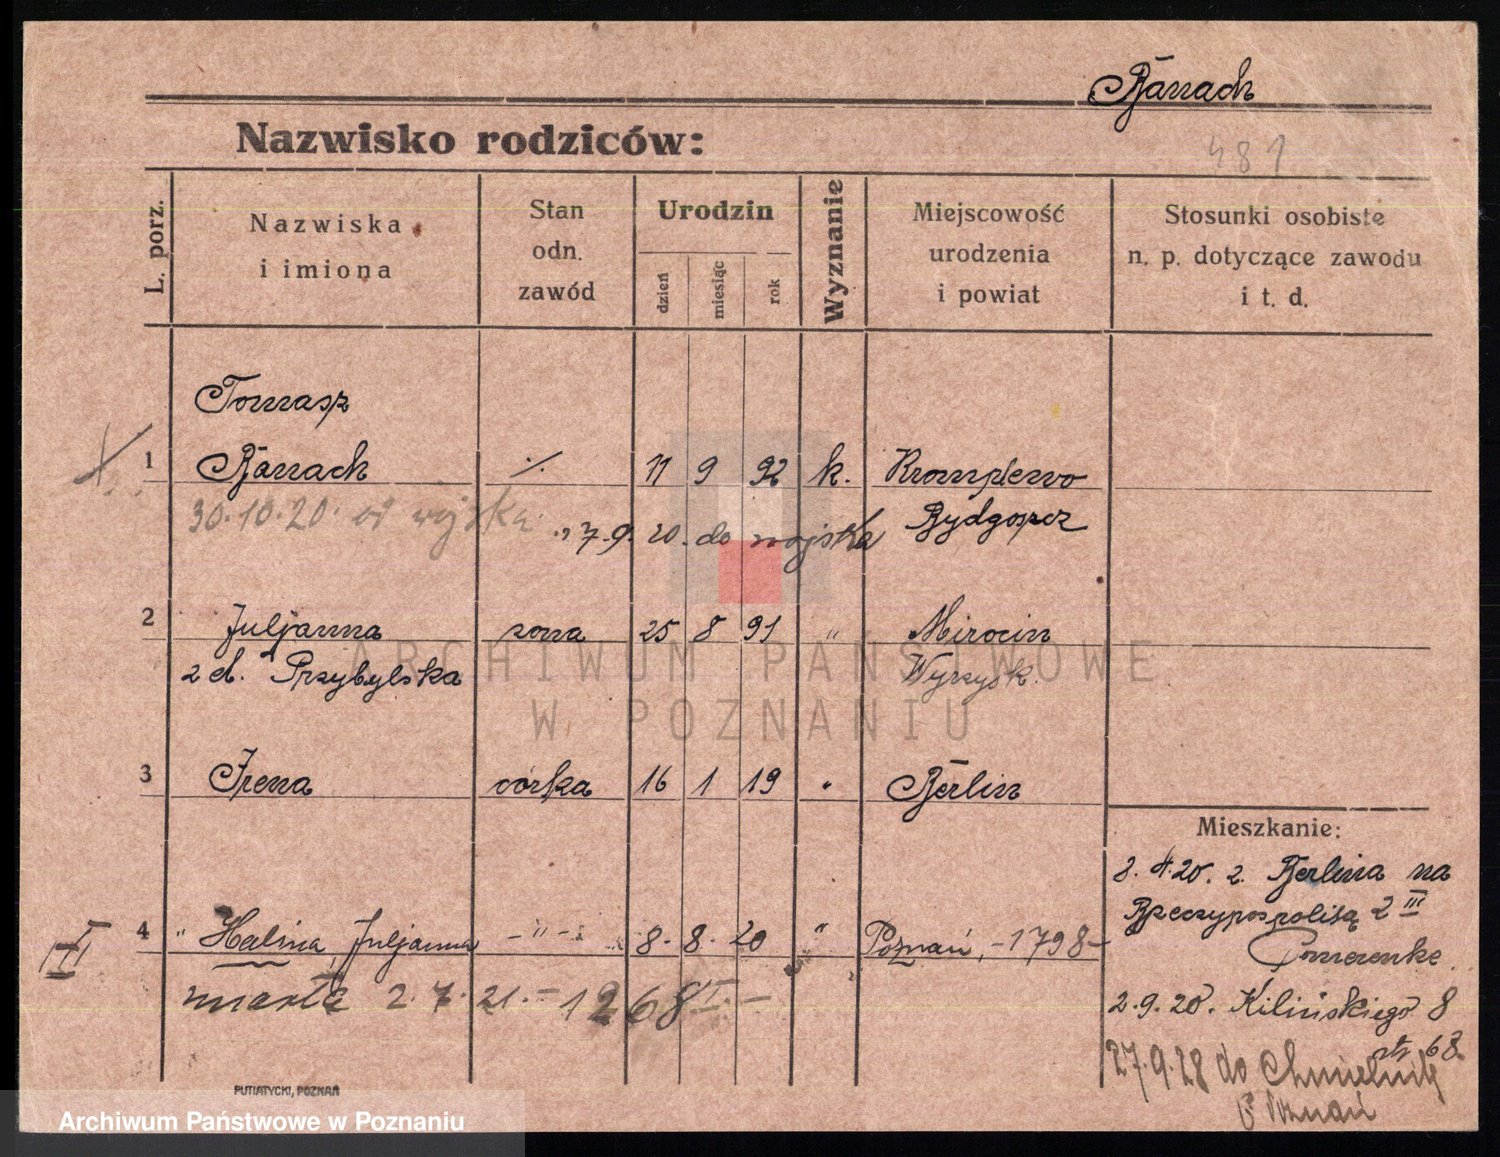 Banach
Nazwisko rodziców:
481
L. porz.
Nazwiska i imiona
Stan odn. zawód
Urodzin
dzień
miesiąc
rok
Wyznanie
Miejscowość urodzenia i powiat
Stosunki osobiste n. p. dotyczące zawodu i t. d.
Tomasz
1 Banach ./. 11 9 92 k. Kromplewo
30.10.20. od wojska 7.9.20. do wojska Bydgoszcz
2 Juljanna żona 25 8 91 " Mirocin
z d. Przybylska Wyrzysk.
3 Irena córka 16 1 19 " Berlin
Mieszkanie:
8.4.20. z Berlina na
Rzeczypospolitą 2 III
Pomerenke
4 " Halina, Juljanna -"- 8. 8. 20 " Poznań, -1798-
zmarła 2.7.21.- 1268 I.-
2.9.20. Kilińskiego 8
ptr 68.
27.9.28 do Chmielnik
p Poznań
III
PUTIATYCKI, POZNAŃ
ARCHIWUM PAŃSTWOWE
W POZNANIU
Archiwum Państwowe w Poznaniu